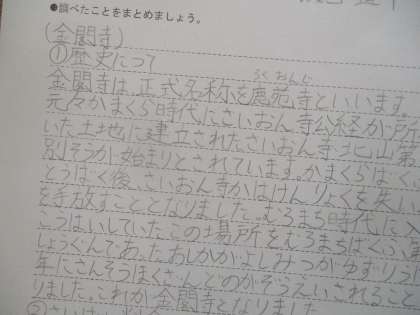 ●調べたことをまとめましょう。
(金閣寺)
①歴史について
ろくおんじ
金閣寺は、正式名称を鹿苑寺といいます。
元々かまくら時代にさいおん寺公経が所
いた土地に建立されたさいおん寺北山第
別そうが始まりとされています。かまくらばく
とうばく後、さいおん寺かはけんりょくを失い
を手放すこととなりました。むろまち時代に入
こうはいしていたこの場所をむろまちばくふ
しょうぐんであったあしかがよしみつがゆずりう
年にさんそうほくさんどのがぞうえいされること
りました。これが金閣寺となりました